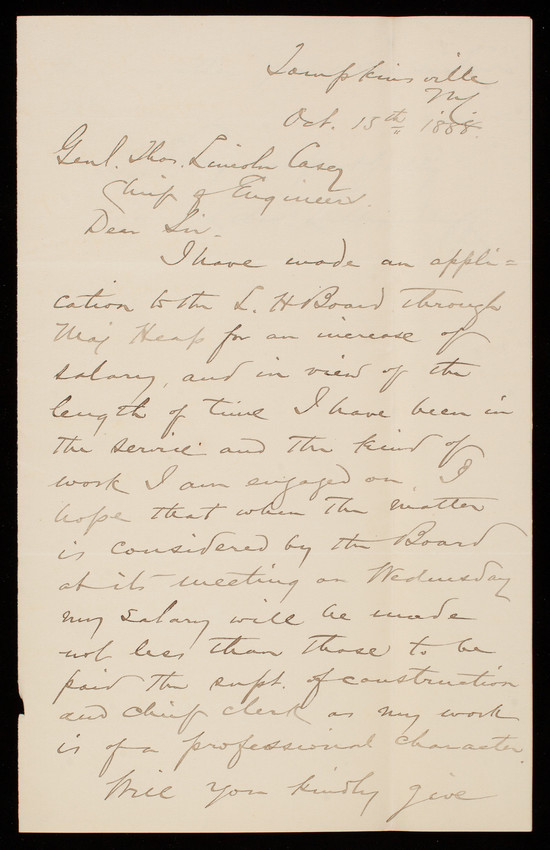 Tompkinsville
NY
Oct. 15th 1888.
Genl. Thos. Lincoln Casey
Chief of Engineers.
Dear Sir.
I have made an appli=
cation to the L. H Board through
Maj Heap for an increase of
salary, and in view of the
length of time I have been in
the service and the kind of
work I am engaged on, I
hope that when the matter
is considered by the Board
at its meeting on Wednesday
my salary will be made
not less than those to be
paid the supt. of construction
and chief clerk as my work
is of a professional character.
Will you kindly give